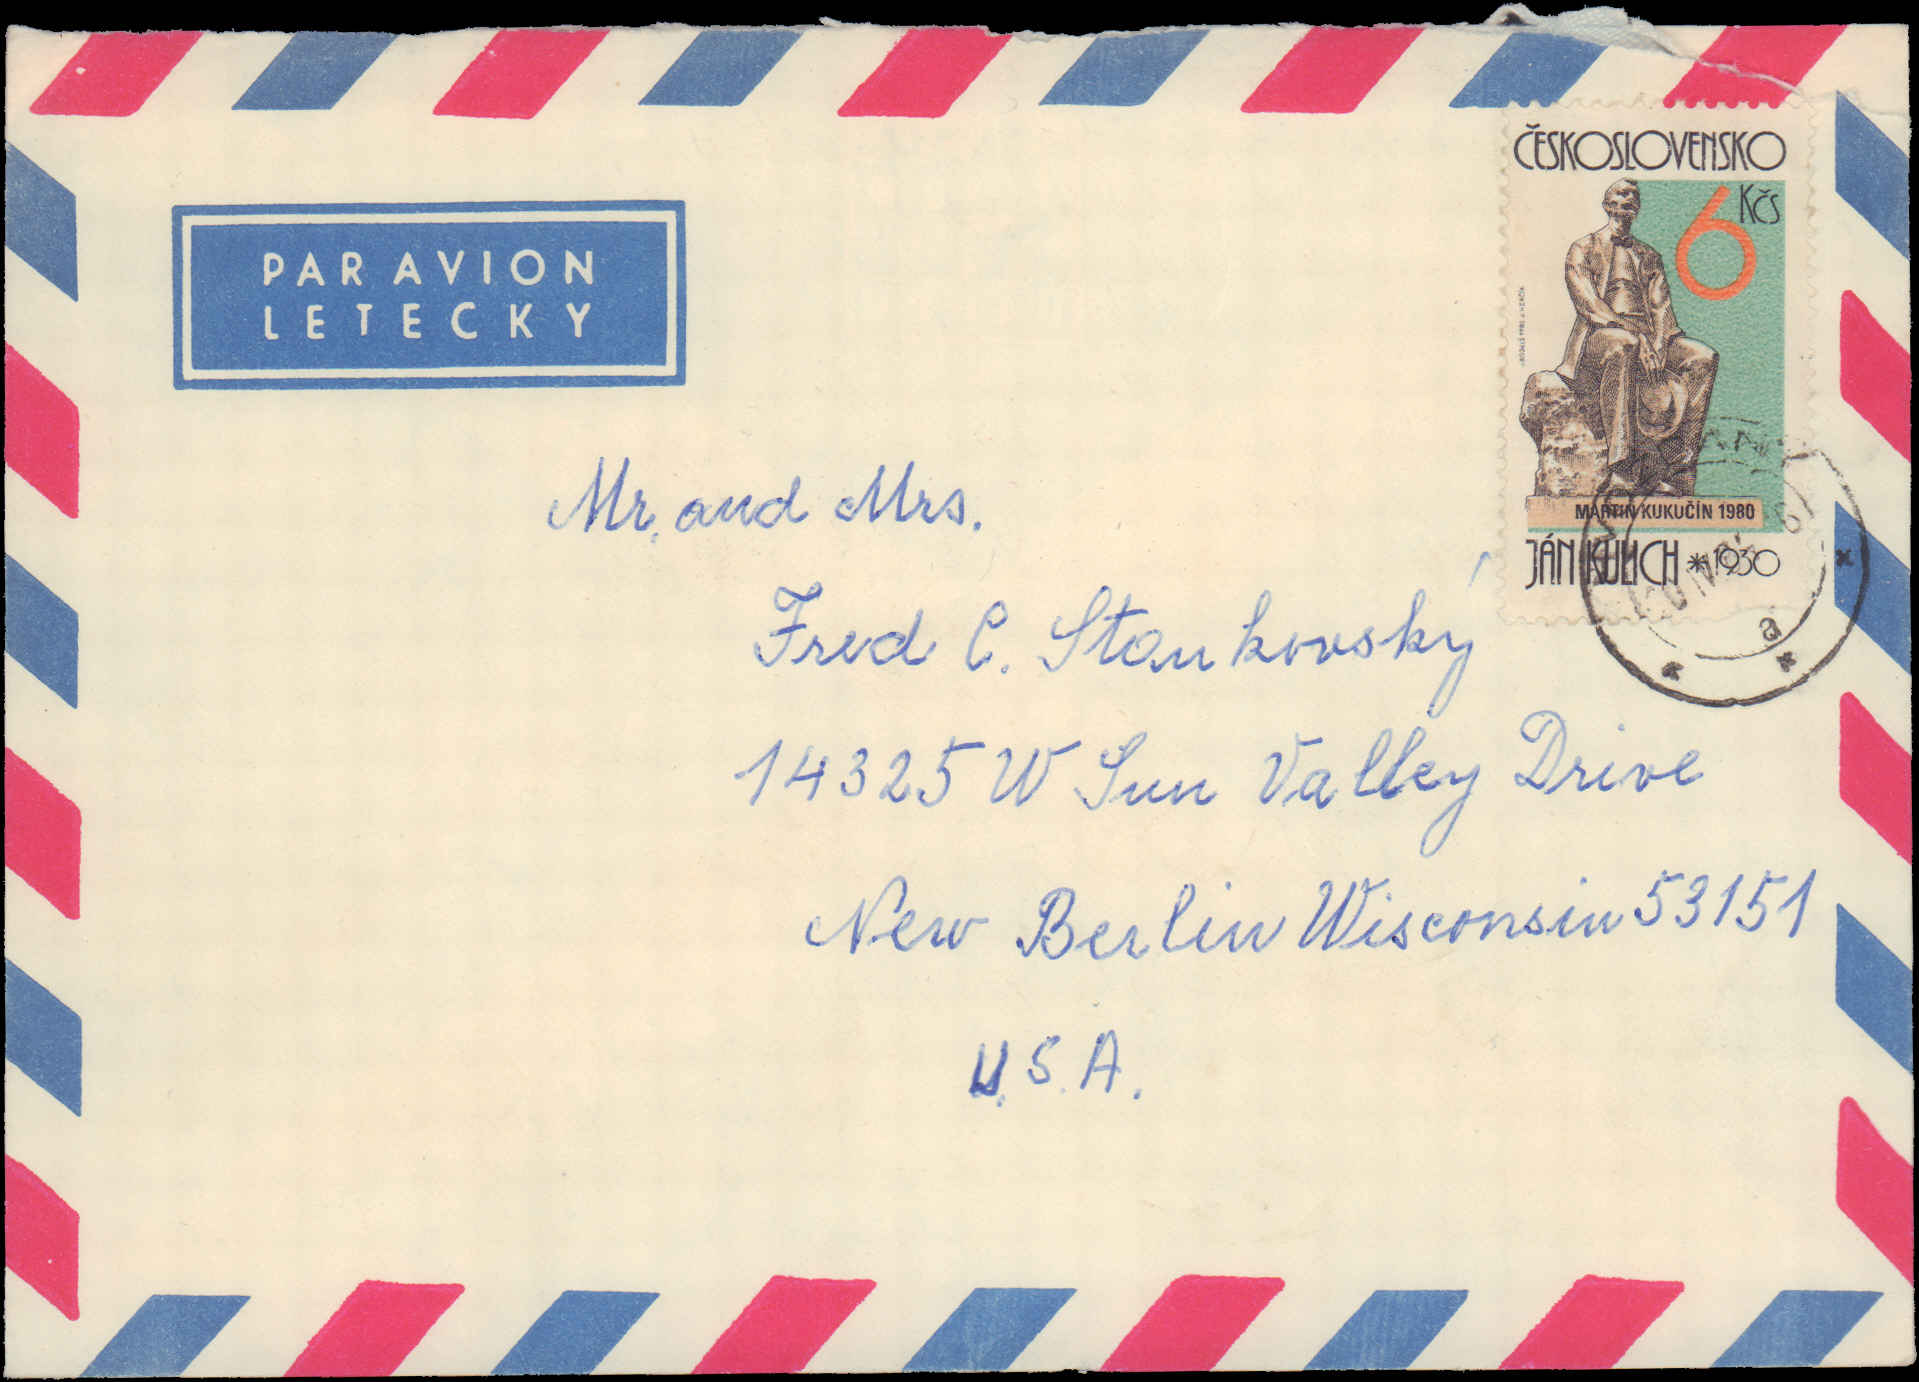 PAR AVION
LETECKY
ČESKOSLOVENSKO
6 Kčs
MARTIN KUKUČÍN 1980
JÁN KULICH *1930
a
Mr. and Mrs.
Fred C. Stankovský
14325 W Sun Valley Drive
New Berlin Wisconsin 53151
U.S.A.